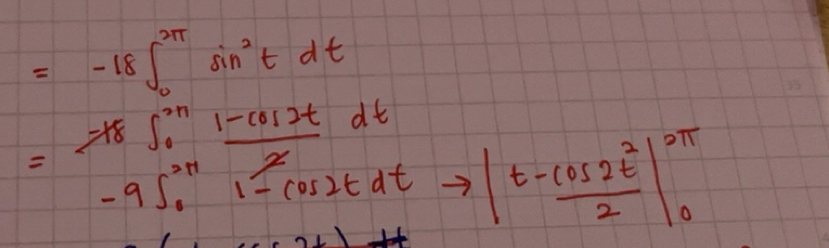 = -18 ∫₀^2π sin²t dt
= -18 ∫₀^2π (1-cos2t)/2 dt
-9 ∫₀^2π 1-cos2t dt → | t - (cos2t²)/2 |₀^2π